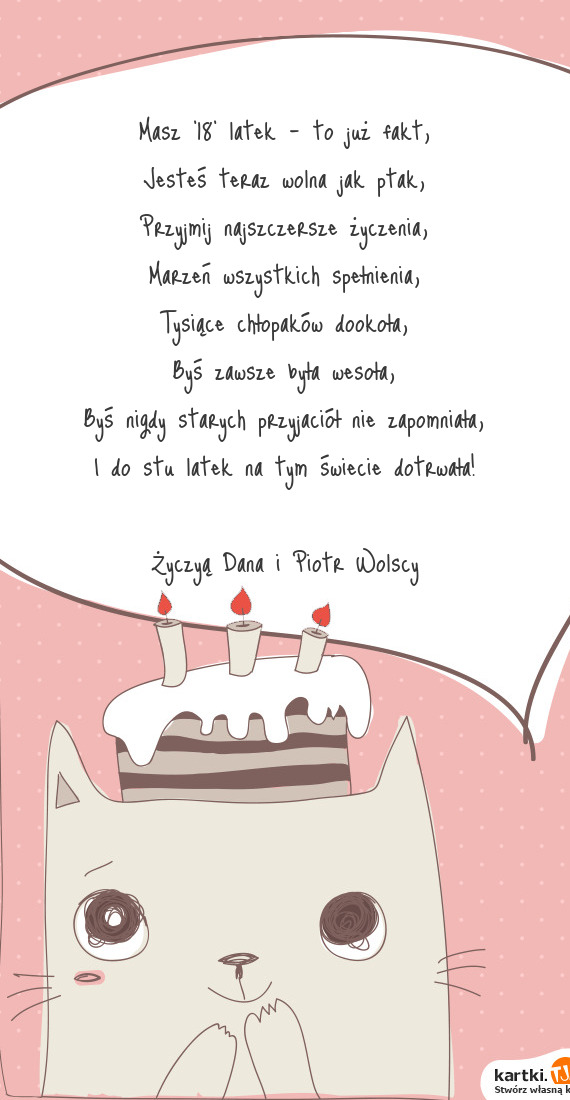 Masz '18' latek - to już fakt,
Jesteś teraz wolna jak ptak,
Przyjmij najszczersze życzenia,
Marzeń wszystkich spełnienia,
Tysiące chłopaków dookoła,
Byś zawsze była wesoła,
Byś nigdy starych przyjaciół nie zapomniała,
I do stu latek na tym świecie dotrwała!
Życzyą Dana i Piotr Wolscy
kartki.TJ
Stwórz własną k